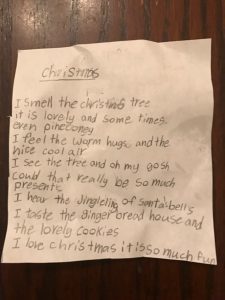 Christmas
I smell the christmas tree
it is lovely and some times
even pineconey
I feel the worm hugs and the
nice cool air
I see the tree and oh my gosh
could that really be so much
presents
I hear the Jingleling of santas bells
I taste the ginger bread house and
the lovely cookies
I love christmas it is so much fun